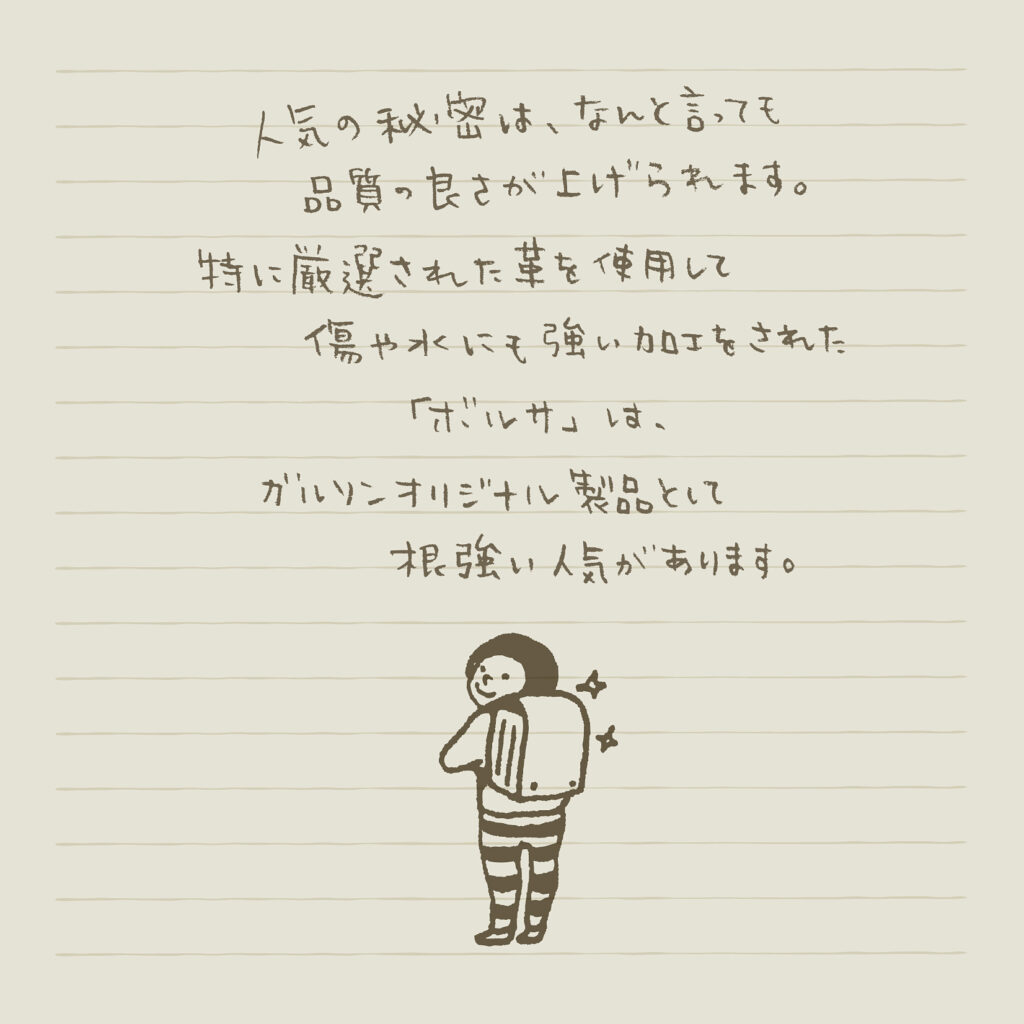 人気の秘密は、なんと言っても
品質の良さが上げられます。
特に厳選された革を使用して
傷や水にも強い加工をされた
「ボルサ」は、
ガルソンオリジナル製品として
根強い人気があります。